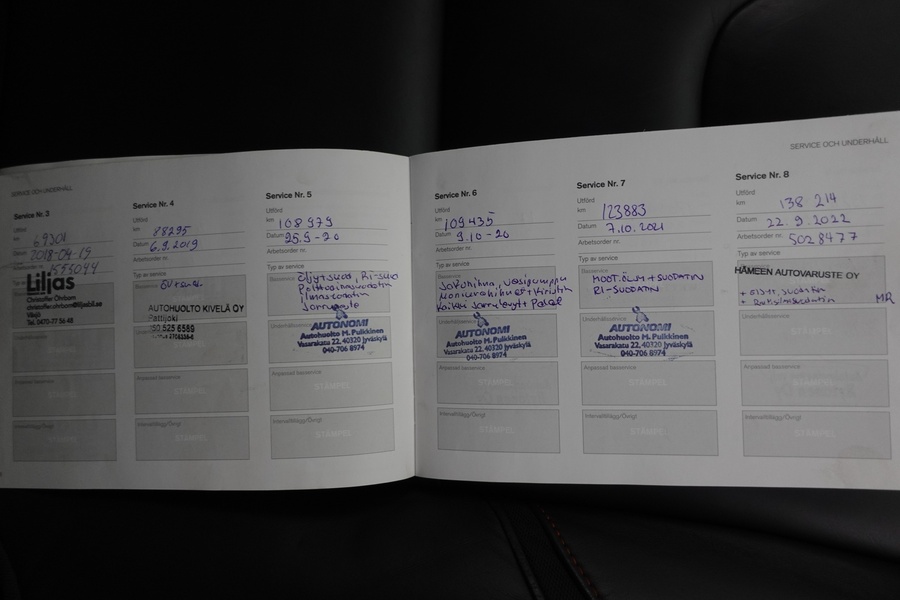 SERVICE OCH UNDERHÅLL
Service Nr. 3
Utförd
km 69301
Datum 2018-04-19
1553044
Liljas
Christoffer Öhrbom
Växjö
Tel. 0470-77 56 48
STÄMPEL
Intervalltillägg/Övrigt
STÄMPEL
Service Nr. 4
Utförd
km 88295
Datum 6.9.2019
Arbetsorder nr.
Typ av service
Basservice
AUTOHUOLTO KIVELÄ OY
Pattijoki
050 525 6589
Anpassad basservice
STÄMPEL
Intervalltillägg/Övrigt
STÄMPEL
Service Nr. 5
Utförd
km 108979
Datum 25.9-20
Arbetsorder nr.
Typ av service
Öljyt+suod, Ri-suod
Polttoainesuodatin
ilmansuodatin
Jarruneste
AUTONOMI
Autohuolto M. Pulkkinen
Vasarakatu 22, 40320 Jyväskylä
040-706 8974
Anpassad basservice
STÄMPEL
Intervalltillägg/Övrigt
STÄMPEL
Service Nr. 6
Utförd
km 109435
Datum 9.10-20
Arbetsorder nr.
Typ av service
Jakohihna, Vesipumppu
Monikiilahihna + Kiristin
Kaikki Jarrulevyt + Palat
AUTONOMI
Autohuolto M. Pulkkinen
Vasarakatu 22, 40320 Jyväskylä
040-706 8974
Anpassad basservice
STÄMPEL
Intervalltillägg/Övrigt
STÄMPEL
Service Nr. 7
Utförd
km 123883
Datum 7.10.2021
Arbetsorder nr.
Typ av service
Basservice
MOOT.ÖLJY + SUODATIN
RI-SUODATIN
AUTONOMI
Autohuolto M. Pulkkinen
Vasarakatu 22, 40320 Jyväskylä
040-706 8974
Anpassad basservice
STÄMPEL
Intervalltillägg/Övrigt
STÄMPEL
SERVICE OCH UNDERHÅLL
Service Nr. 8
Utförd
km 138 214
Datum 22.9.2022
Arbetsorder nr. 5028477
Typ av service
HÄMEEN AUTOVARUSTE OY
+ öljyn suodatin
+ raitisilmasuodatin MR
Underhållsservice
STÄMPEL
Anpassad basservice
STÄMPEL
Intervalltillägg/Övrigt
STÄMPEL